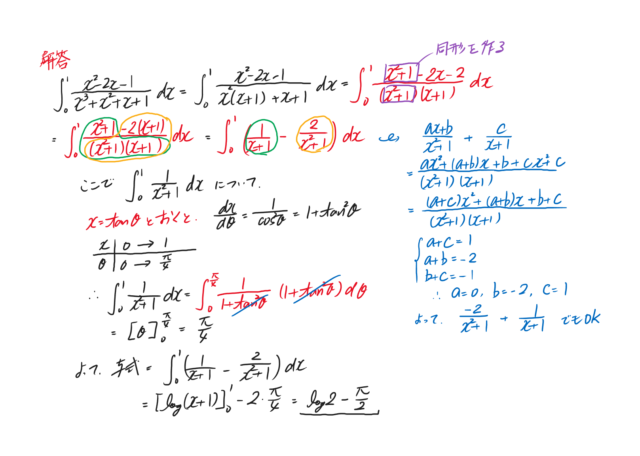 解答
同形を作る
∫₀¹ (x²-2x-1)/(x³+x²+x+1) dx = ∫₀¹ (x²-2x-1)/(x²(x+1)+x+1) dx = ∫₀¹ (x²+1-2x-2)/((x²+1)(x+1)) dx
= ∫₀¹ (x²+1-2(x+1))/((x²+1)(x+1)) dx = ∫₀¹ (1/(x+1) - 2/(x²+1)) dx
ここで ∫₀¹ 1/(x²+1) dx について.
x=tanθ とおくと. dx/dθ = 1/cos²θ = 1+tan²θ
x | 0 → 1
θ | 0 → π/4
∴ ∫₀¹ 1/(x²+1) dx = ∫₀^(π/4) 1/(1+tan²θ) (1+tan²θ) dθ
= [θ]₀^(π/4) = π/4
よって. 与式 = ∫₀¹ (1/(x+1) - 2/(x²+1)) dx
= [log(x+1)]₀¹ - 2·π/4 = log2 - π/2
(ax+b)/(x²+1) + c/(x+1)
= (ax²+(a+b)x+b+cx²+c)/((x²+1)(x+1))
= ((a+c)x²+(a+b)x+b+c)/((x²+1)(x+1))
a+c=1
a+b=-2
b+c=-1
∴ a=0, b=-2, c=1
よって. -2/(x²+1) + 1/(x+1) でもOK